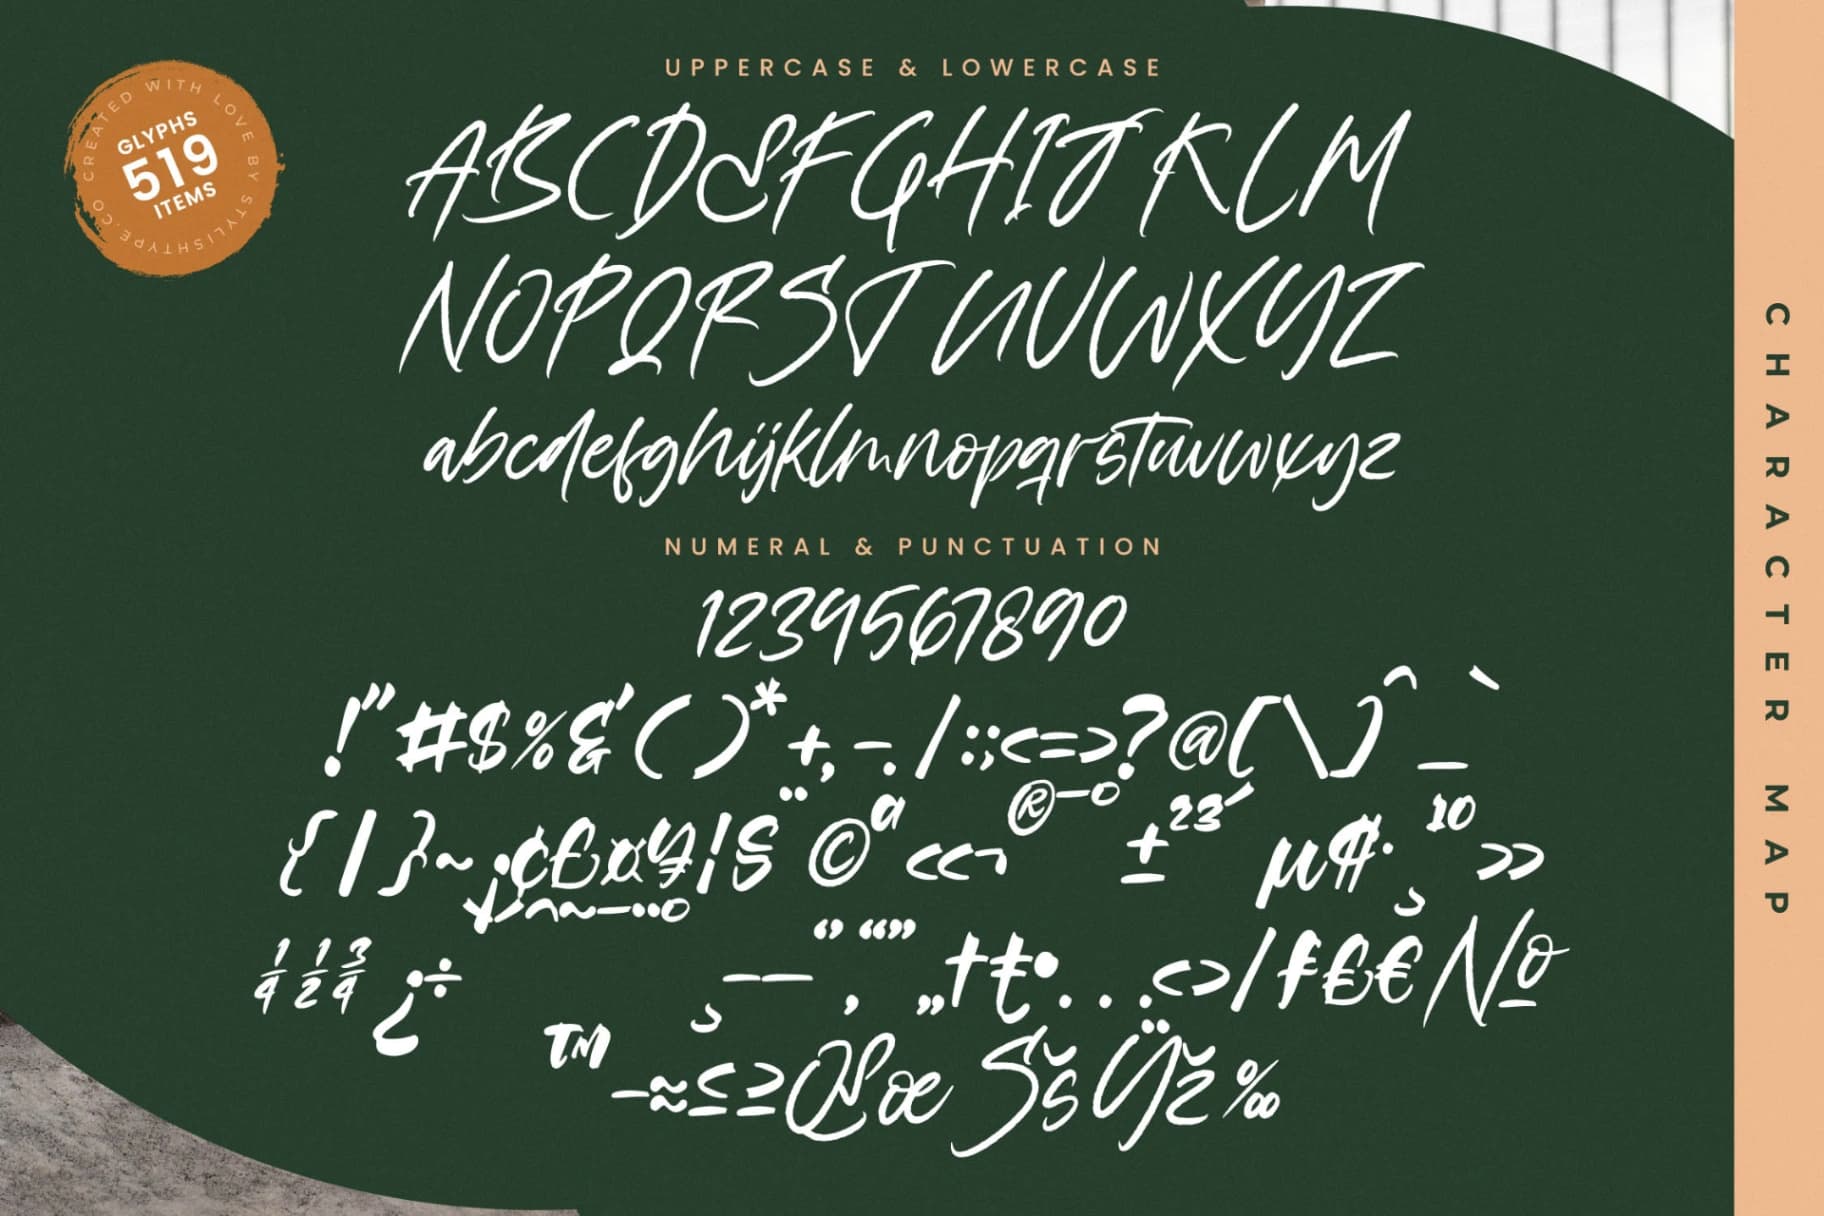 CREATED WITH LOVE BY STYLISHTYPE.CO
GLYPHS
519
ITEMS
UPPERCASE & LOWERCASE
ABCDEFGHIJKLM
NOPQRSTUVWXYZ
abcdefghijklmnopqrstuvwxyz
NUMERAL & PUNCTUATION
1234567890
!"#$%&'()*+,-./:;<=>?@[\]^_`
{|}~¡¢£¤¥¦§¨©ª«¬®¯°±²³´µ¶·¸¹º»
¼½¾¿÷ˇ˘ˆ˜¯˙¨˚¸–—‘’‚“”„†‡•...‹›⁄₣₤€№
™−≈≤≥ŒœŠšŸž‰
CHARACTER MAP